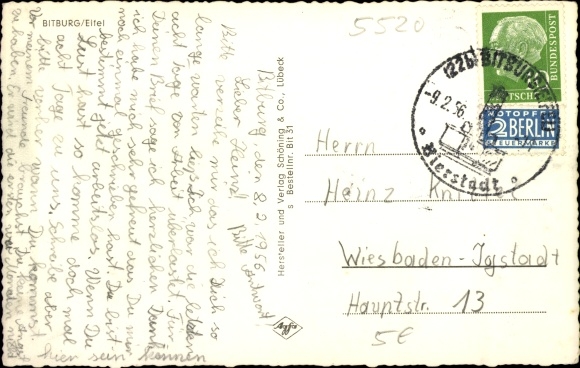 BITBURG/Eifel
Bitburg, den 8.2.1956.
Lieber Heinz!
Bitte verzeih mir, dass ich Dich so
lange warten liess. Ich war die letzten
acht Tage von Arbeit überlastet. Für
Deinen Brief sage ich herzlichen Dank
ich habe mich sehr gefreut dass Du mir
noch einmal geschrieben hast. Du bist
bestimmt jetzt arbeitslos. Wenn Du
Lust hast so komme doch mal
acht Tage zu uns. Schreibe aber
bitte vorher wann Du kommst!
Von meinem Freunde brauchst Du keine Angst
zu haben, er wird die
hier sein können
Bitte Antwort!
Hersteller und Verlag Schöning & Co., Lübeck
S Bestellnr. Bit 31
Agfa
5520
(22b) BITBURG
-9.2.56
Bierstadt
DEUTSCHE BUNDESPOST
NOTOPFER
2 BERLIN
STEUERMARKE
Herrn
Heinz
Wiesbaden-Igstadt
Hauptstr. 13
5€